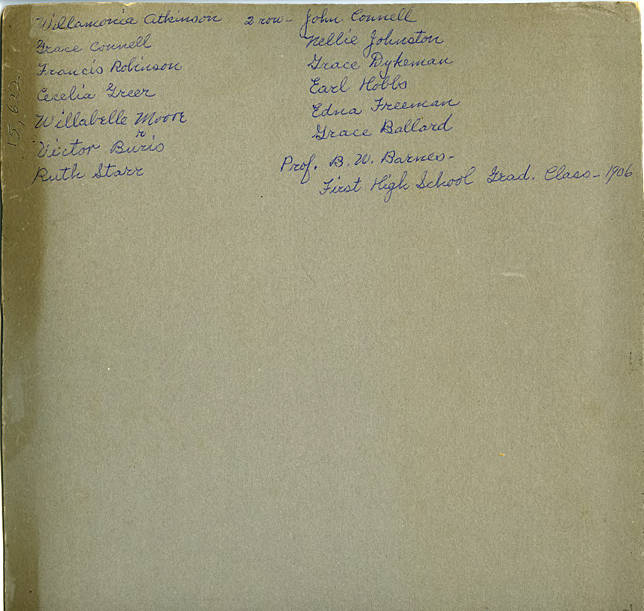 Willamonia Atkinson
Grace Connell
Francis Robinson
Cecelia Greer
Willabelle Moore
Victor Burris
Ruth Starr
2 row - John Connell
Nellie Johnston
Grace Dykeman
Earl Hobbs
Edna Freeman
Grace Ballard
Prof. B. W. Barnes -
First High School Grad. Class - 1906